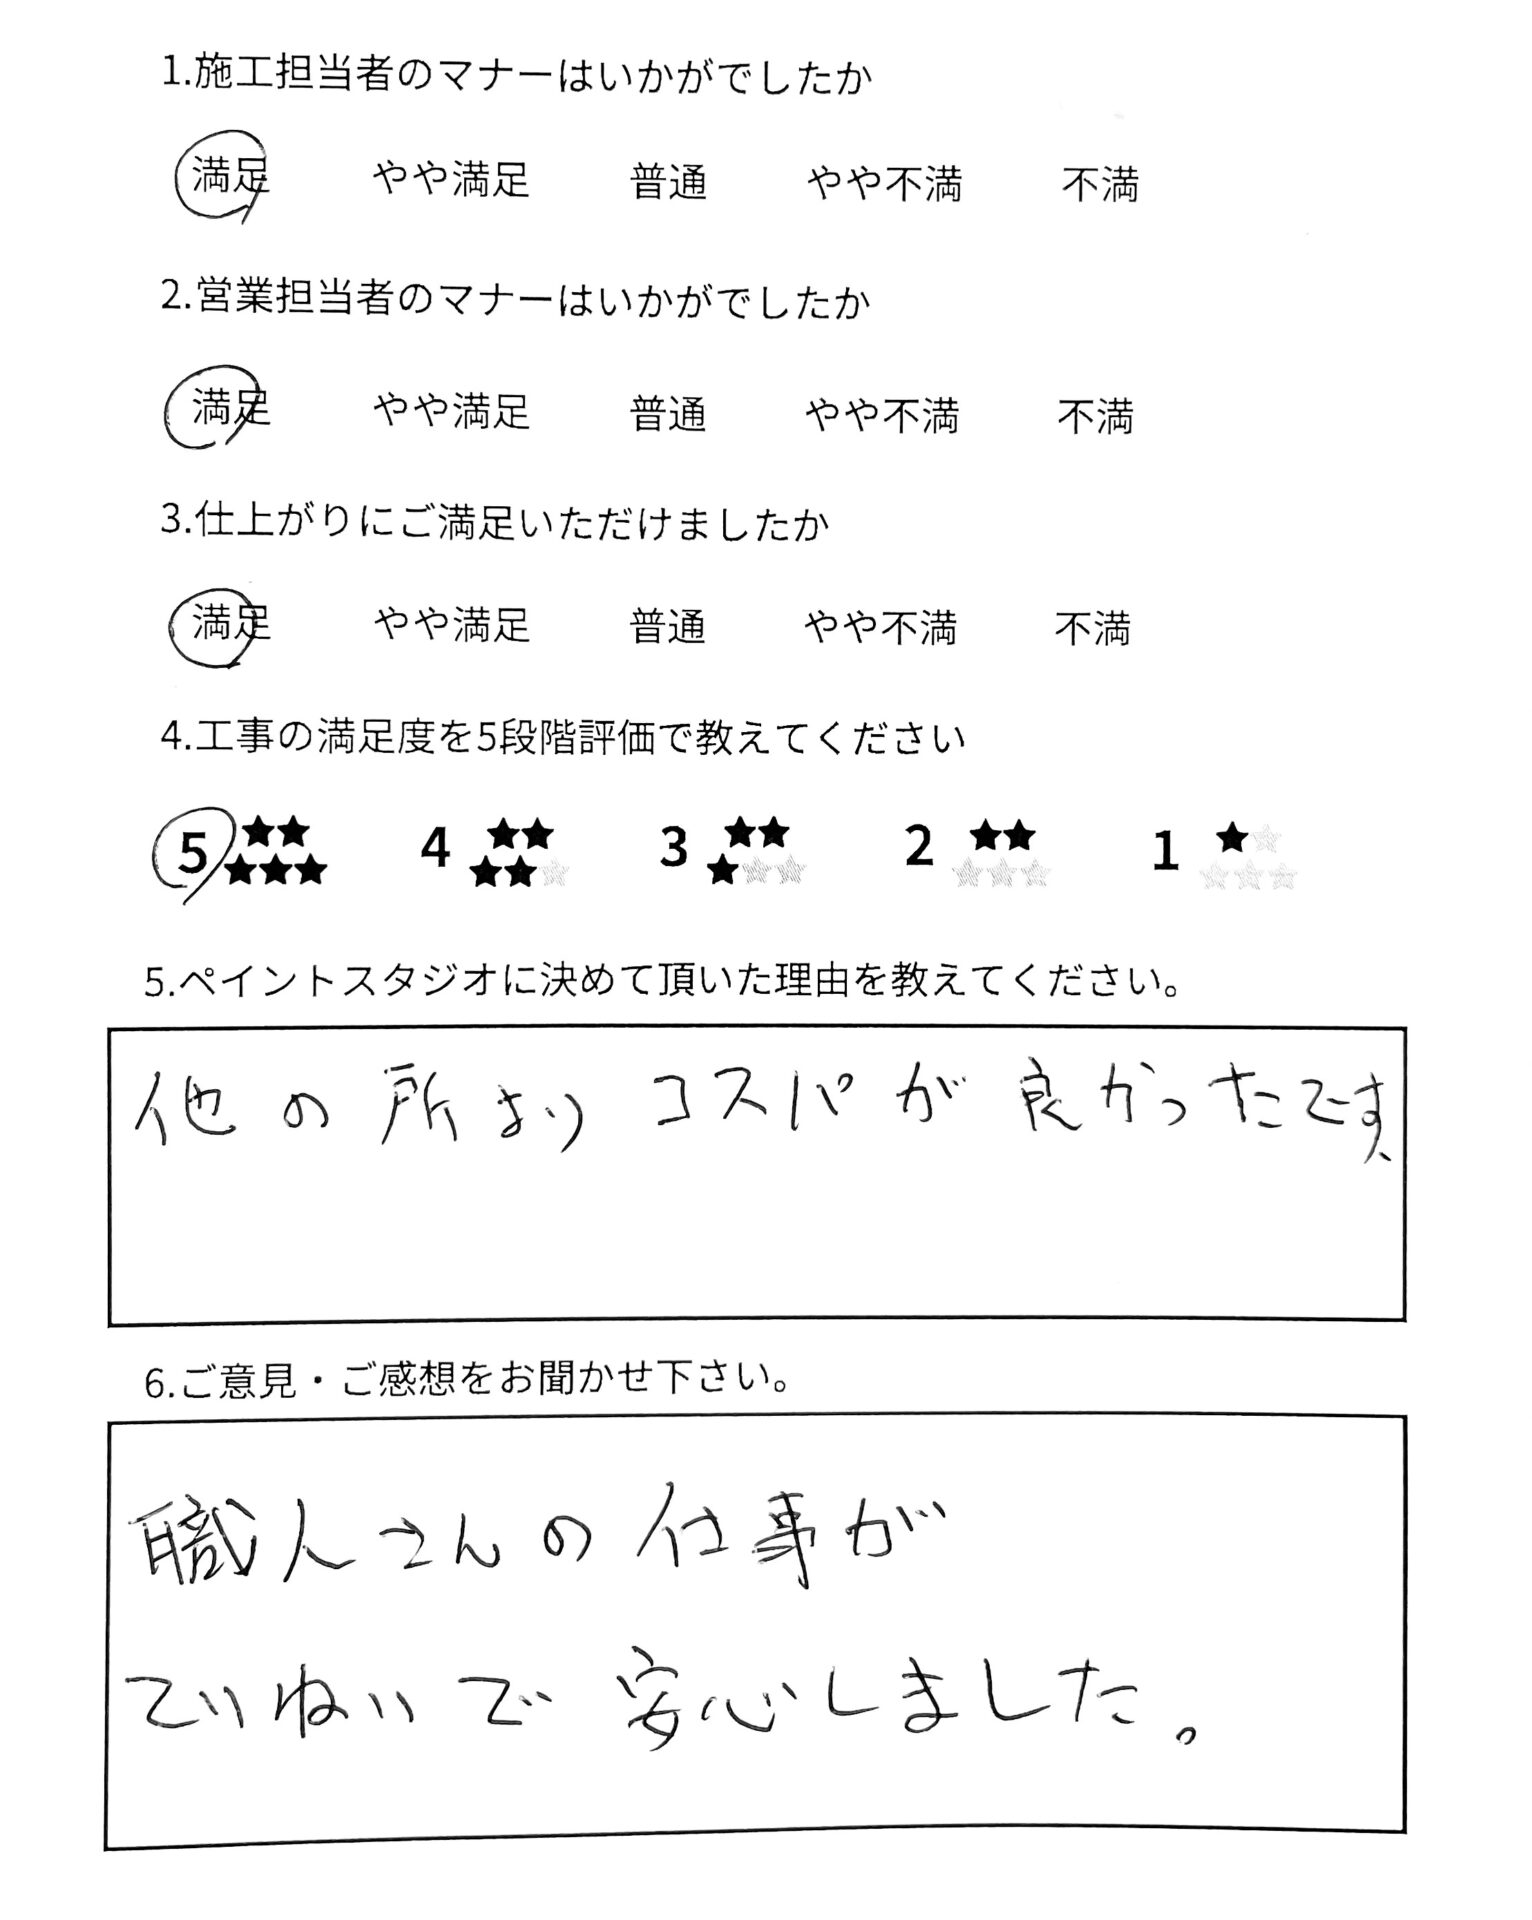 1.施工担当者のマナーはいかがでしたか
満足 やや満足 普通 やや不満 不満
2.営業担当者のマナーはいかがでしたか
満足 やや満足 普通 やや不満 不満
3.仕上がりにご満足いただけましたか
満足 やや満足 普通 やや不満 不満
4.工事の満足度を5段階評価で教えてください
5 ★★★★★ 4 ★★★★☆ 3 ★★★☆☆ 2 ★★☆☆☆ 1 ★☆☆☆☆
5.ペイントスタジオに決めて頂いた理由を教えてください。
他の所よりコスパが良かったです、
6.ご意見・ご感想をお聞かせ下さい。
職人さんの仕事が
ていねいで安心しました。